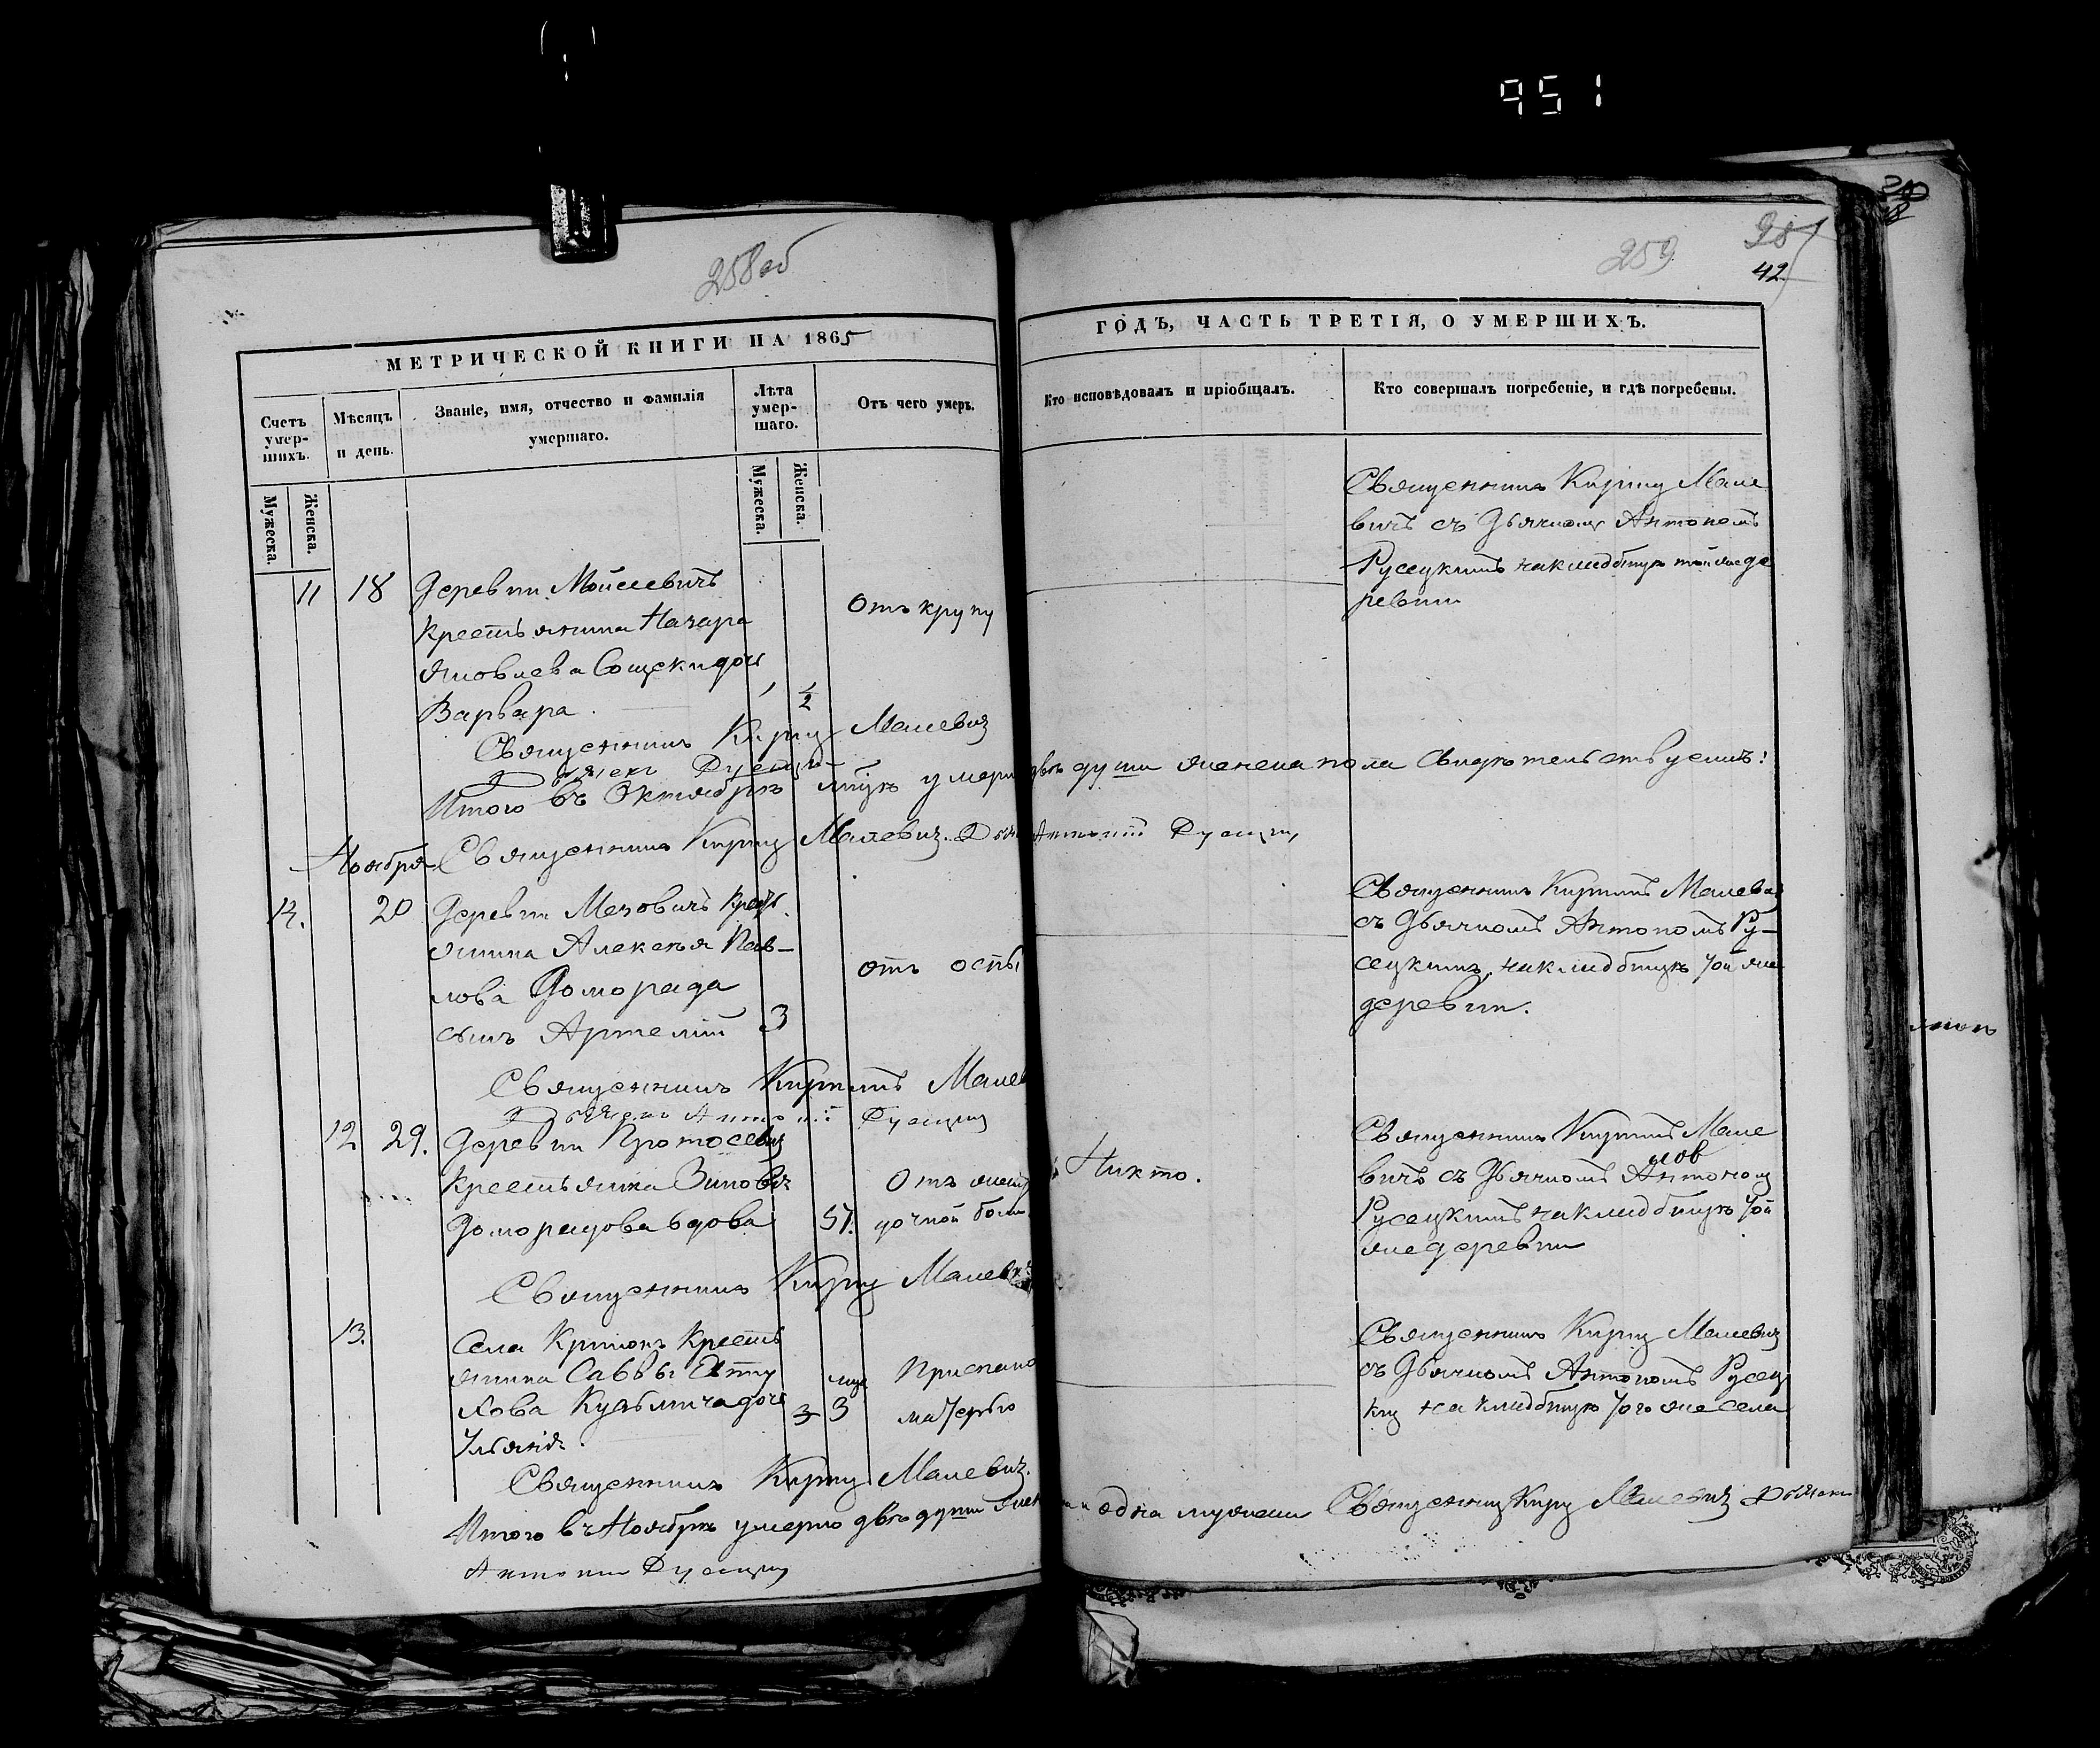 951
258об
259
42
МЕТРИЧЕСКОЙ КНИГИ НА 1865
ГОДЪ, ЧАСТЬ ТРЕТІЯ, О УМЕРШИХЪ.
Счетъ умер-
шихъ.
Мѣсяцъ
и день.
Званіе, имя, отчество и фамилія
умершаго.
Лѣта
умер-
шаго.
Отъ чего умеръ.
Кто исповѣдовалъ и пріобщалъ.
Кто совершалъ погребеніе, и гдѣ погребены.
Мужеска.
Женска.
Мужеска.
Женска.
11 18 Деревни Мойсеевичъ
крестьянина Назара
Яковлева Сощеки дочь
Варвара.
1/2
Отъ крупу
Священникъ Кирилъ Мале
вичъ съ Дьячкомъ Антономъ
Русецкимъ на кладбищѣ той же де
ревни
Священникъ Кирилъ Малевичъ
Дьячекъ Русецкій
Итого въ Октябрѣ мцѣ умерло двѣ души женска пола свидѣтельствуемъ:
Священникъ Кирилъ Малевичъ. Дьячекъ Антоній Русецкій
Ноября
14. 20 Деревни Мезовичъ кресть
янина Алексѣя Пав-
лова Доморада
сынъ Артемій 3
отъ оспы
Священникъ Кириллъ Малевичъ
съ Дьячкомъ Антономъ Ру-
сецкимъ, на кладбищѣ той же
деревни.
Священникъ Кириллъ Малев
Дьячекъ Антоній Русецкій
12 29. Деревни Протосевич
крестьянка
Доморадова вдова 57.
Отъ
дочной болѣ
Никто.
Священникъ Кириллъ Мале
вичъ съ Дьячкомъ Антоном
Русецкимъ на кладбищѣ той
же деревни
Священникъ Кирилъ Малевичъ
13. Села Кресть
янина Саввы
хова Кузьмича дочь
Ульянія.
3 3
Приспано
матерью
Священникъ Кирилъ Малевичъ
съ Дьячкомъ Антономъ Русец
кимъ на кладбищѣ того же села
Священникъ Кирилъ Малевичъ.
Итого въ Ноябрѣ умерло двѣ души жен и одна мужеска Священникъ Кирилъ Малевичъ Дьячекъ
Антоній Русецкій